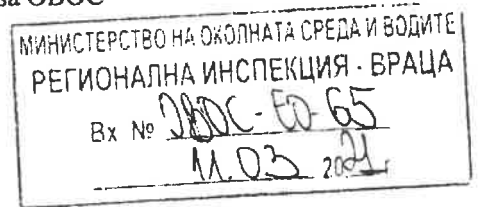 за ОВОС
МИНИСТЕРСТВО НА ОКОЛНАТА СРЕДА И ВОДИТЕ
РЕГИОНАЛНА ИНСПЕКЦИЯ - ВРАЦА
Вх № ОВОС-ЕО-65
11.03 2021